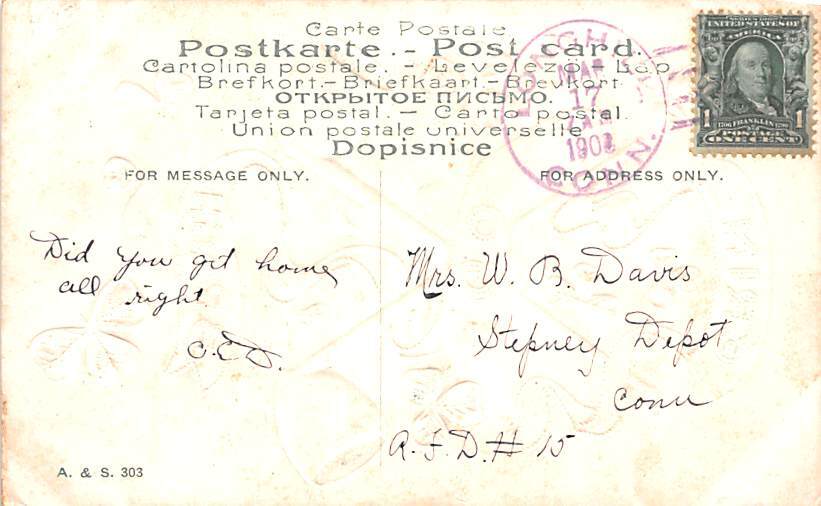 Carte Postale
Postkarte.- Post card.
Cartolina postale. - Levelező-Lap
Brefkort.-Briefkaart.-Brevkort
ОТКРЫТОЕ ПИСЬМО.
Tarjeta postal. — Carto postal
Union postale universelle
Dopisnice
MAR
17
190
CONN.
SERIES 1902
UNITED STATES OF
AMERICA
1706 FRANKLIN 1790
1 POSTAGE 1
ONE CENT
FOR MESSAGE ONLY.
FOR ADDRESS ONLY.
Did you get home
all right
C.E.D.
Mrs. W. B. Davis
Stepney Depot
Conn
R.F.D. # 15
A. & S. 303